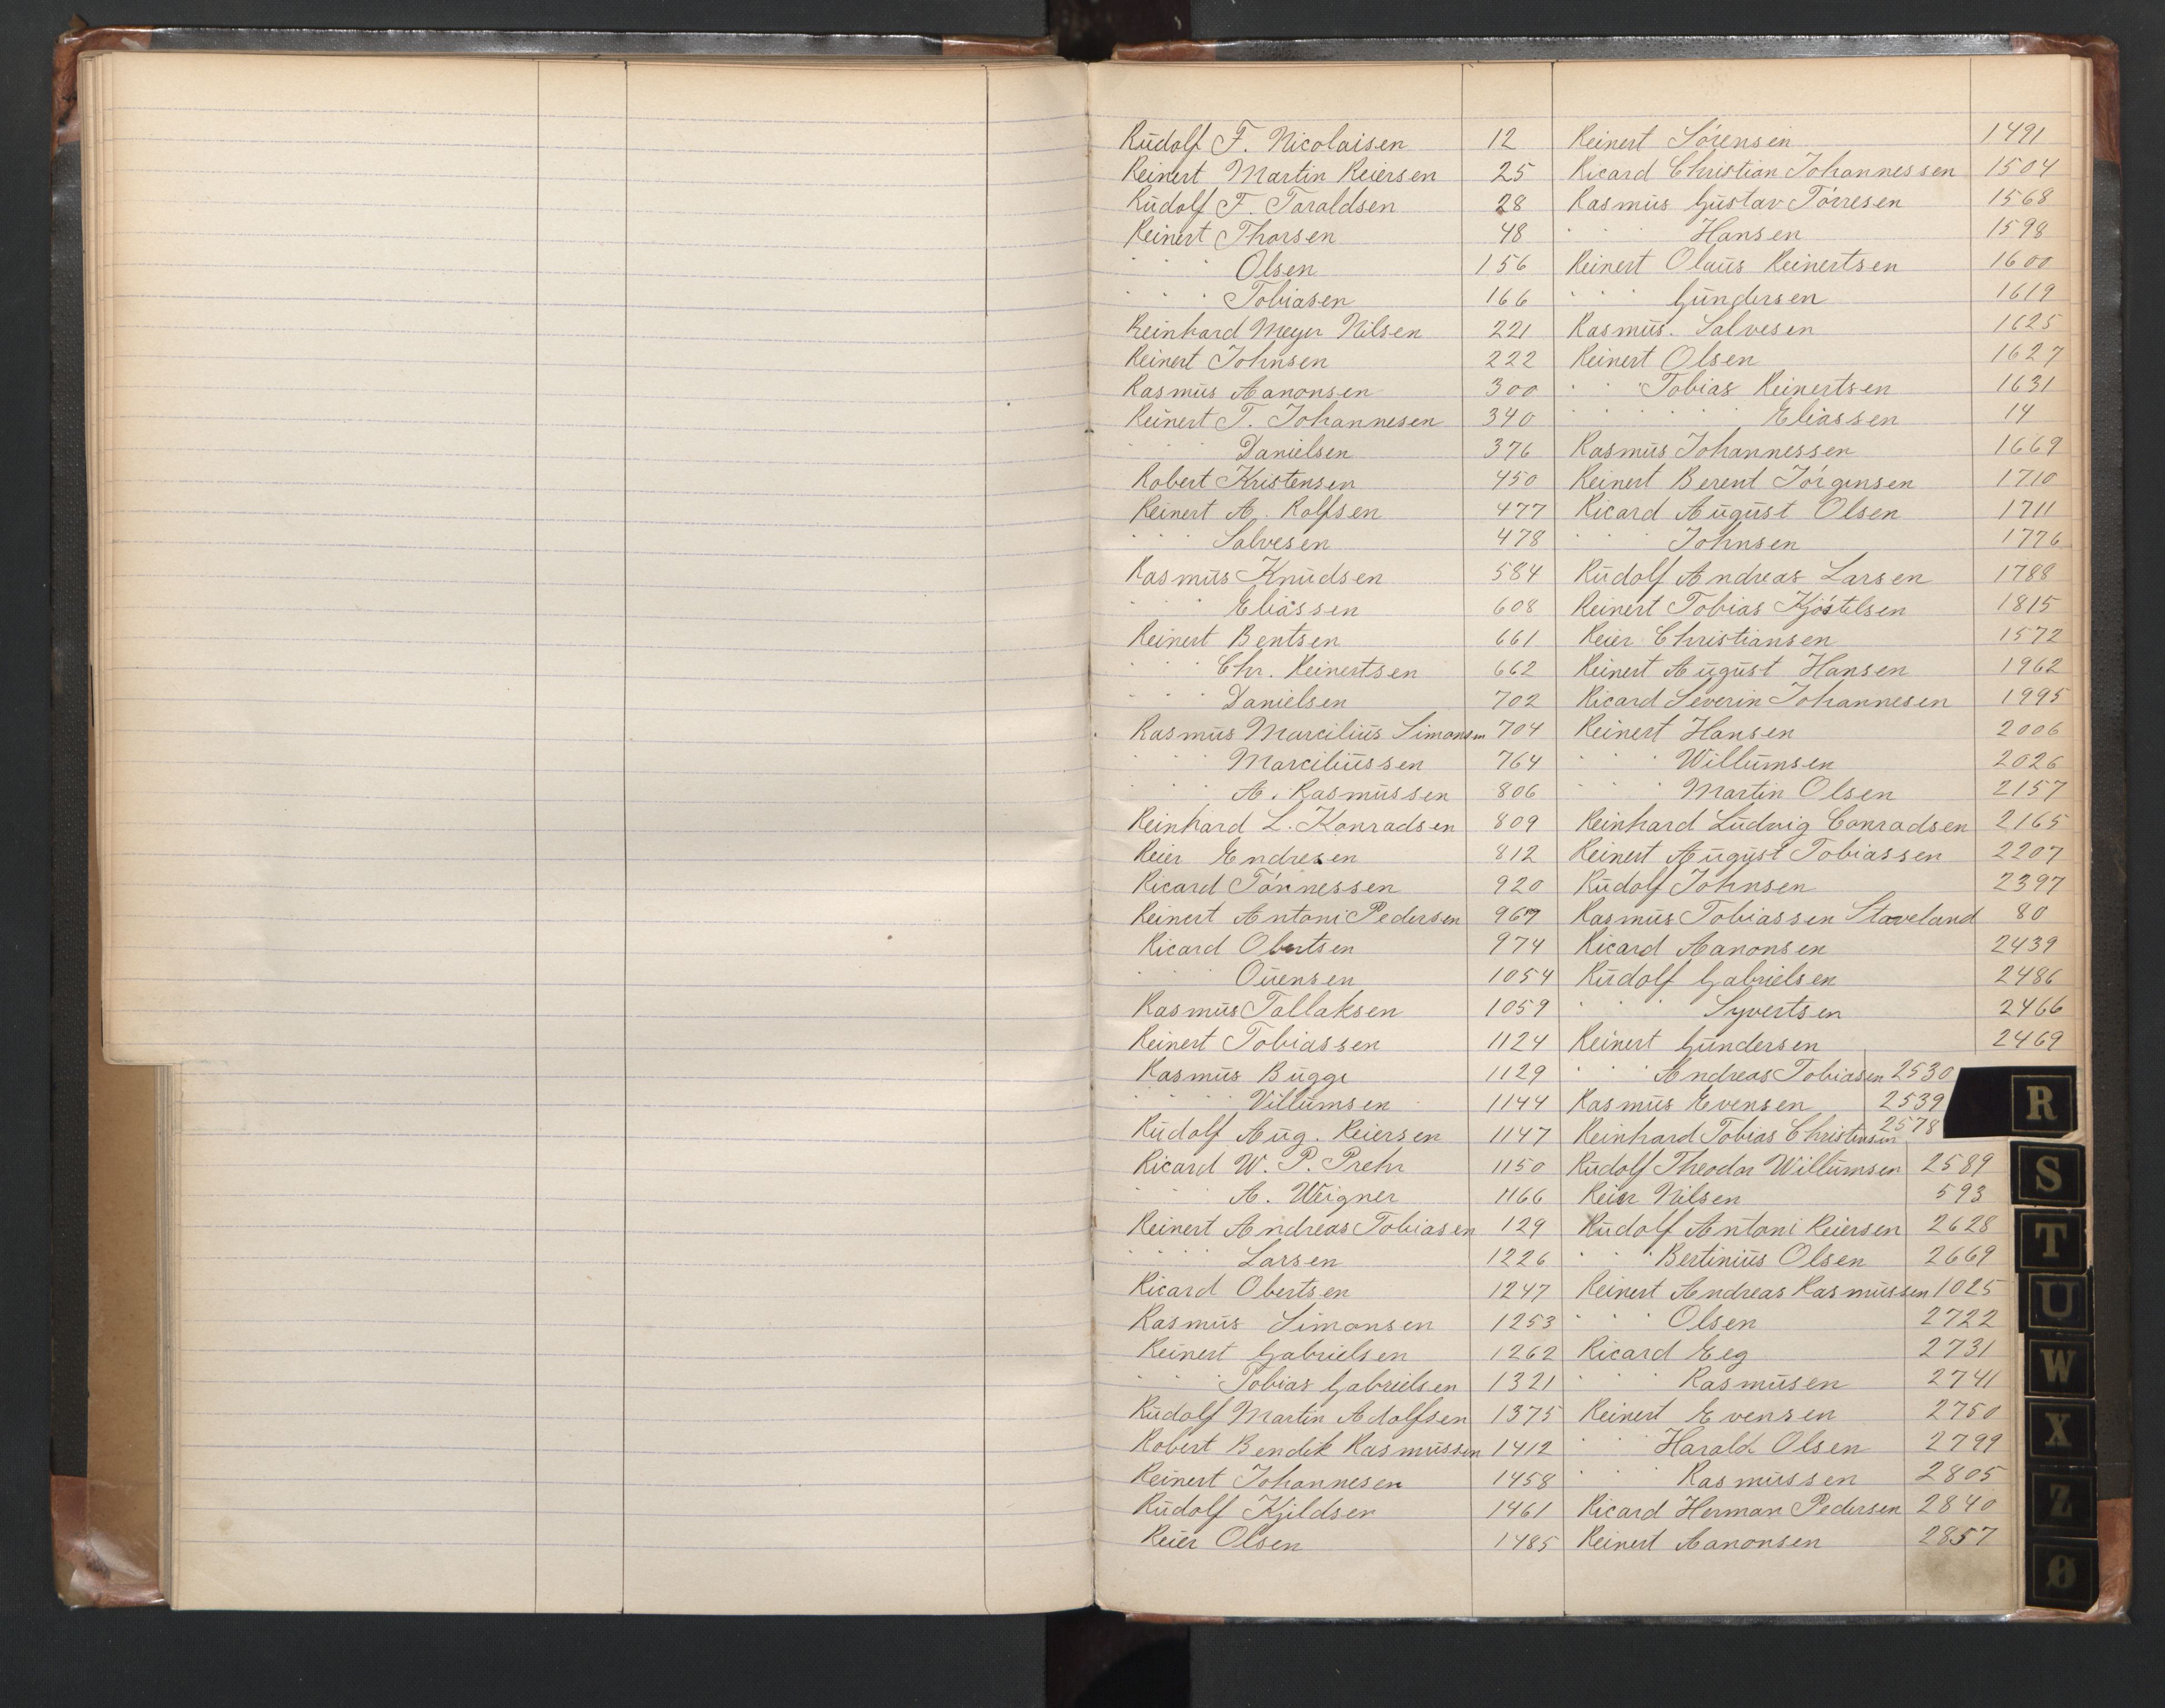 Rudolf F. Nicolaisen 12
Reinert Martin Reiersen 25
Rudolf F. Taraldsen 28
Reinert Thorsen 48
" " " Olsen 156
" " " Tobiasen 166
Reinhard Meyer Nilsen 221
Reinert Johnsen 222
Rasmus Aanonsen 300
Reinert T. Johannesen 340
" " Danielsen 376
Robert Kristensen 450
Reinert A. Rolfsen 477
" " " Salvesen 478
Rasmus Knudsen 584
" " " Eliassen 608
Reinert Bentsen 661
" " " Chr. Reinertsen 662
" " " Danielsen 702
Rasmus Marcilius Simonsen 704
" " " Marciliussen 764
" " " A. Rasmussen 806
Reinhard L. Konradsen 809
Reier Endresen 812
Ricard Tónnessen 920
Reinert Antoni Pedersen 967
Ricard Obertsen 974
" " " Ouensen 1054
Rasmus Tallaksen 1059
Reinert Tobiassen 1124
Rasmus Bugge 1129
" " " " Villumsen 1144
Rudolf Aug. Reiersen 1147
Ricard W. P. Prehr 1150
" " " A. Weigner 1166
Reinert Andreas Tobiasen 129
" " " " Larsen 1226
Ricard Obertsen 1247
Rasmus Simonsen 1253
Reinert Gabrielsen 1262
" " " Tobias Gabrielsen 1321
Rudolf Martin Adolfsen 1375
Robert Bendik Rasmussen 1412
Reinert Johannesen 1458
Rudolf Kjeldsen 1461
Reier Olsen 1485
Reinert Sórensen 1491
Ricard Christian Johannessen 1504
Rasmus Gustav Tórresen 1568
" " " Hansen 1598
Reinert Olaus Reinertsen 1600
" " " Gundersen 1619
Rasmus. Salvesen 1625
Reinert Olsen 1627
" " " Tobias Reinertsen 1631
" " " " " Eliassen 14
Rasmus Johannessen 1669
Reinert Berent Jórgensen 1710
Ricard August Olsen 1711
" " " Johnsen 1776
Rudolf Andreas Larsen 1788
Reinert Tobias Kjóstelsen 1815
Reier Christiansen 1572
Reinert August Hansen 1962
Ricard Severin Johannesen 1995
Reinert Hansen 2006
" " " Willumsen 2026
" " " Martin Olsen 2157
Reinhard Ludvig Conradsen 2165
Reinert August Tobiassen 2207
Rudolf Johnsen 2397
Rasmus Tobiassen Staveland 80
Ricard Aanonsen 2439
Rudolf Gabrielsen 2486
" " " Syvertsen 2466
Reinert Gundersen 2469
" " " Andreas Tobiasen 2530
Rasmus Evensen 2539
Reinhard Tobias Christensen 2578
Rudolf Theodor Willumsen 2589
Reier Nilsen 593
Rudolf Antoni Reiersen 2628
" " " Bertinius Olsen 2669
Reinert Andreas Rasmussen 1025
" " " Olsen 2722
Ricard Eeg 2731
" " " Rasmusen 2741
Reinert Evensen 2750
" " Harald Olsen 2799
" " " Rasmussen 2805
Ricard Herman Pedersen 2840
Reinert Aanonsen 2857
R
S
T
U
W
X
Z
Ø